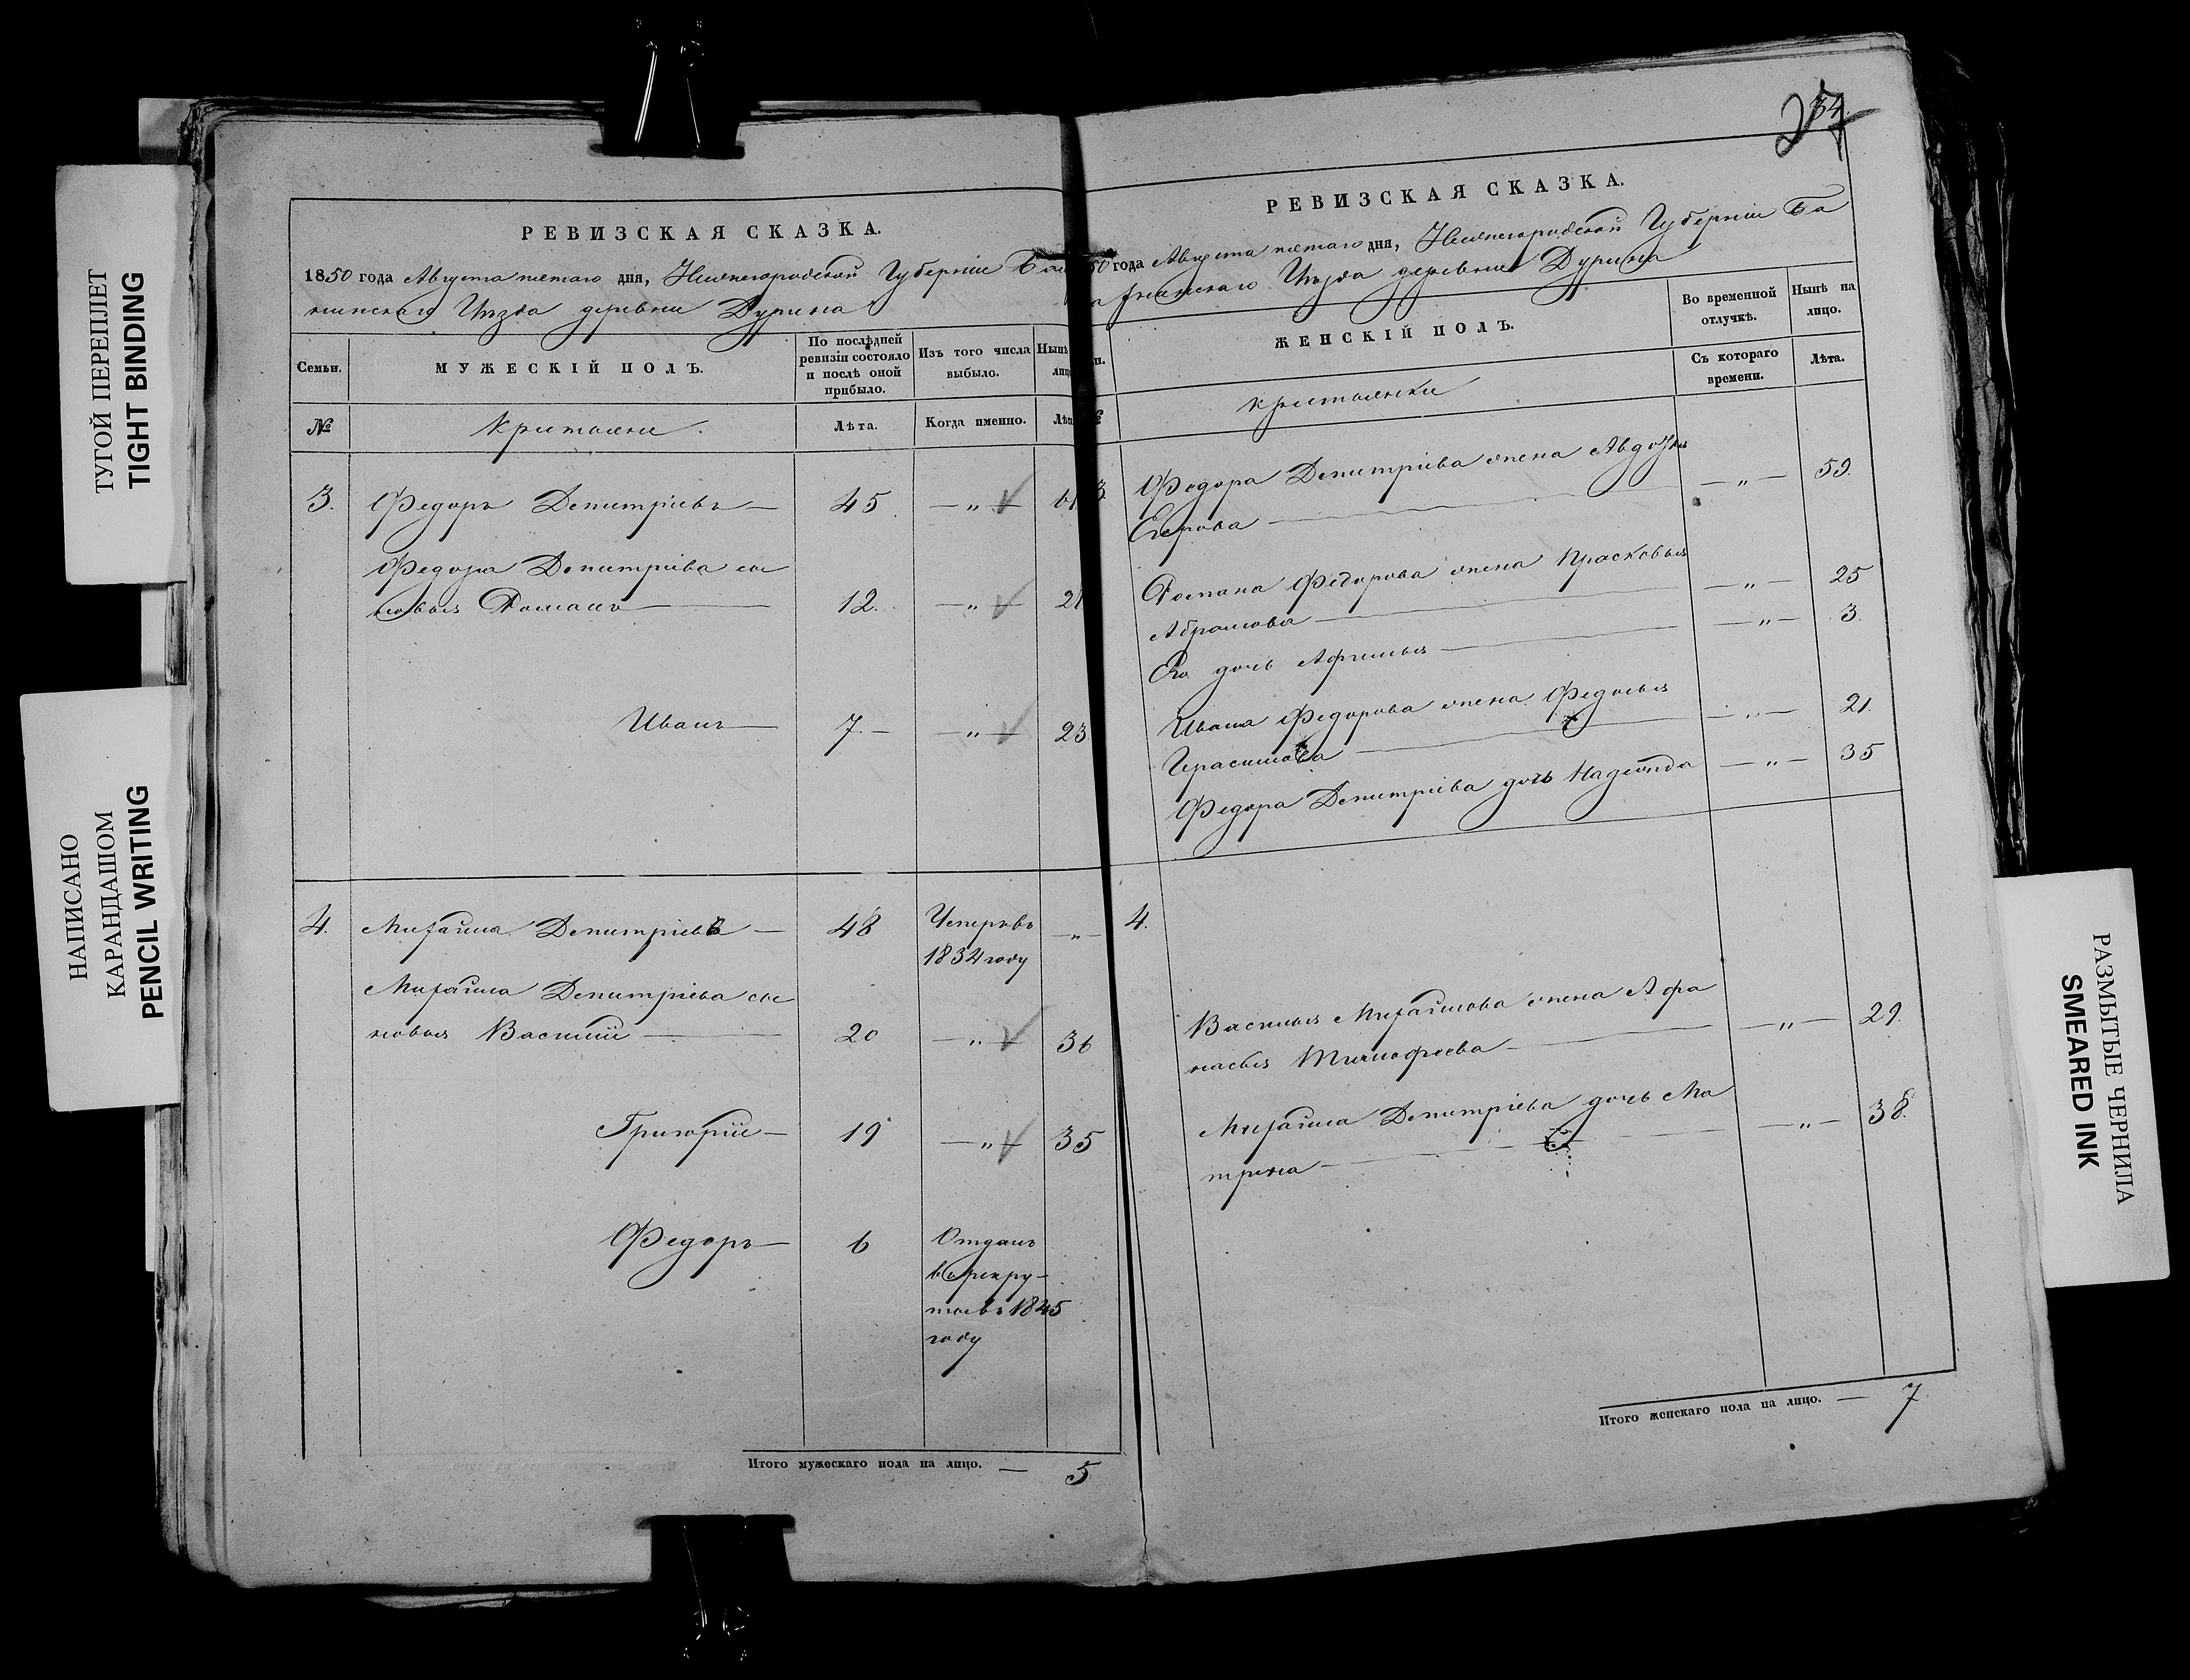 ТУГОЙ ПЕРЕПЛЕТ
TIGHT BINDING
НАПИСАНО
КАРАНДАШОМ
PENCIL WRITING
РЕВИЗСКАЯ СКАЗКА.
1850 года Августа пятаго дня, Нижегородской Губерніи Бала
хнинскаго Уѣзда деревни Дурина
Семьи. МУЖЕСКІЙ ПОЛЪ. По послѣдней ревизіи состояло и послѣ оной прибыло. Изъ того числа выбыло. Нынѣ
№ Крестьяне. Лѣта. Когда именно.
3. Федоръ Дмитріевъ — 45 — „ — 61
Федора Дмитріева сы
новья Романъ — 12. — „ —
Иванъ — 7. — — „ — 23
4. Михаила Дмитріевъ — 48 Умеръ въ — „ —
1834 году
Михаила Дмитріева сы
новья Василій — 20 — „ — 36
Григорій — 19 — „ — 35
Федоръ — 6 Отданъ
въ рекру-
ты въ 1845
году
Итого мужескаго пола на лицо. — 5
27
34.
РЕВИЗСКАЯ СКАЗКА.
50 года Августа пятаго дня, Нижегородской Губерніи Ба
лахнинскаго Уѣзда деревни Дурина
ЖЕНСКІЙ ПОЛЪ. Во временной отлучкѣ. Нынѣ на лицо.
Съ котораго времени. Лѣта.
Крестьянки
3. Федора Дмитріева жена Авдотья
Егорова — — „ — 59.
Романа Федорова жена Прасковья
Абрамова — — „ — 25
Его дочь Афимья — — „ — 3.
Ивана Федорова жена Федосья
Герасимова — — „ — 21.
Федора Дмитріева дочь Надежда — „ — 35
4.
Василья Михайлова жена Афа
насья Тимофеева — — „ — 29.
Михаила Дмитріева дочь Ма
трена — — „ — 38.
Итого женскаго пола на лицо. — 7
РАЗМЫТЫЕ ЧЕРНИЛА
SMEARED INK